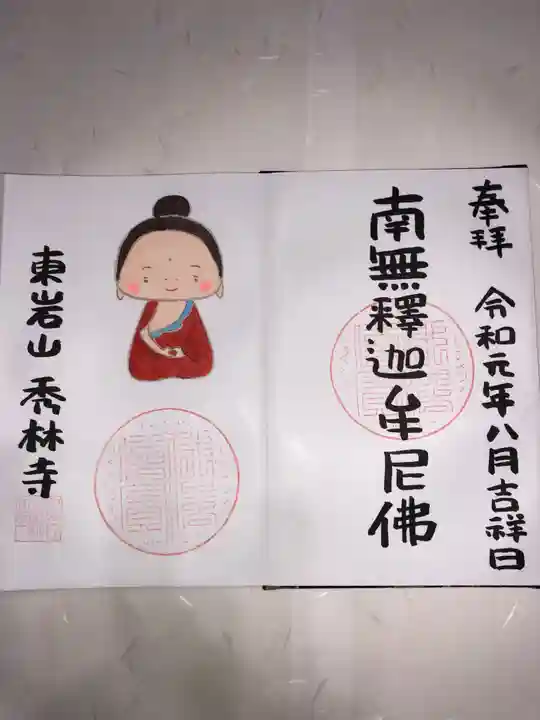 奉拝 令和元年八月吉祥日
南無釋迦牟尼佛
東岩山 秀林寺